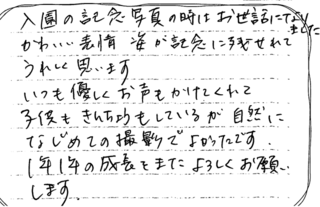 入園の記念写真の時はお世話になりました
かわいい表情 姿が記念に残せれて
うれしく思います
いつも優しくお声もかけてくれて
子供もきんちょうもしているが自然に
なじめての撮影でよかったです.
1年1年の成長をまたよろしくお願い
します.